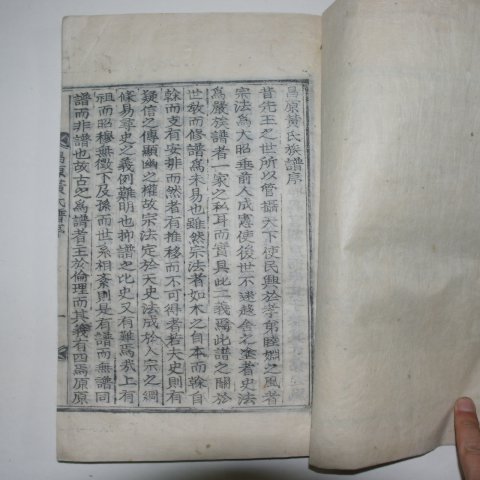 昌原黃氏族譜序
昔先王之世所以管攝天下使民興於孝弟睦婣之風者
宗法爲大昭垂前人成憲使後世不遠越舍之塗者史法
爲嚴族譜者一家之私耳而實具此二義焉此譜之關於
世敎而修譜爲未易也雖然宗法者如木之自本而榦自
榦而支有安排而然者有推移而不可得者若夫史則有
疑信之傳顯幽之權故宗法定於天史法成於人宗之綱
條易尋史之義例難明也抑譜之比史又有難焉我上有
祖而昭穆無徵下及孫而世系相紊則是有譜而無譜同
譜而非譜也故古之爲譜者主於倫理而其義有四焉原原
昌原黃氏譜序
一